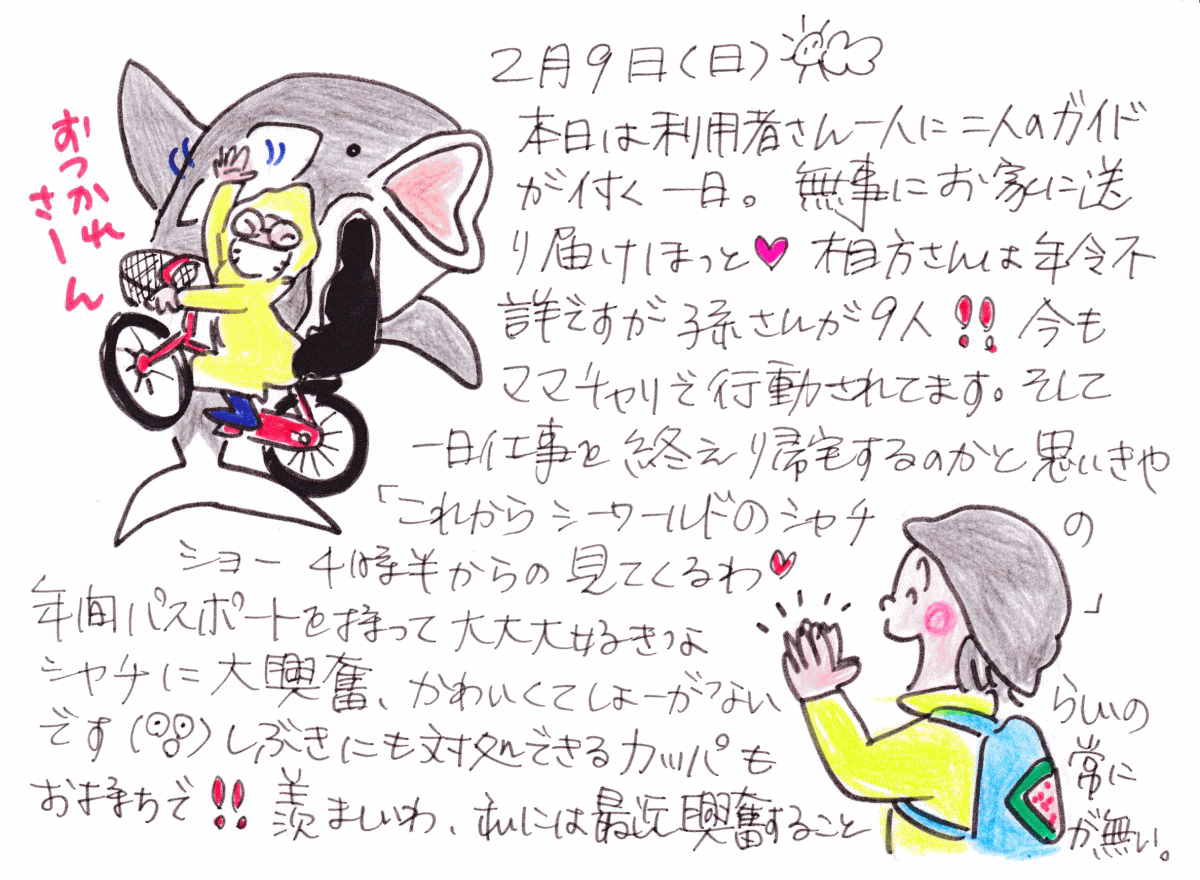 2月9日(日)
本日は利用者さん一人に二人のガイド
が付く一日。無事にお家に送
り届けほっと♥ 相方さんは年令不
詳ですが孫さんが9人!! 今も
ママチャリで行動されてます。そして
一日仕事を終えり帰宅するのかと思いきや
「これからシーワールドのシャチ
ショー 4時半からの見てくるわ♥」
の
年間パスポートを持って大大大好きっょ
シャチに大興奮、かわいくてしょーがない
らしいの
です( )しぶきにも対処できるカッパも
常に
お持ちで!! 羨ましいわ、私には最近興奮すること
が無い。
おつかれ
さーん